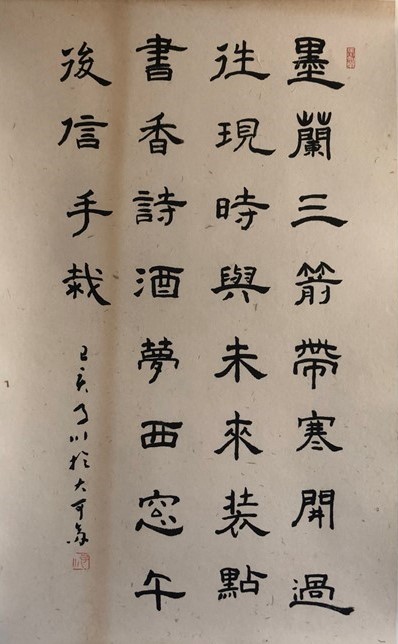 墨蘭三箭帶寒開過
往現時與未來装點
書香詩酒夢西窓午
後信手栽
己亥乃川於大可斋